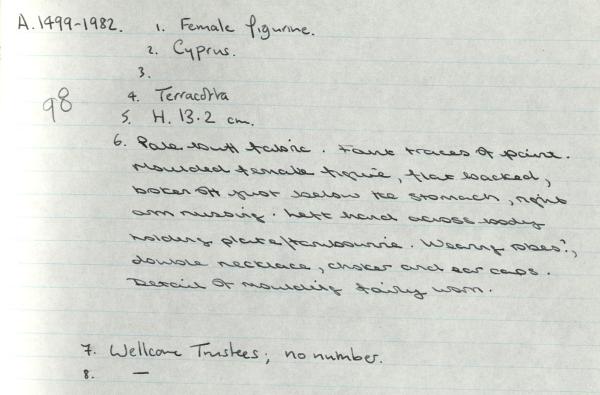 A.1499-1982. 1. Female figurine.
2. Cyprus.
3.
98
4. Terracotta
5. H. 13.2 cm.
6. Pale buff fabric. Faint traces of paint.
Moulded female figure, flat backed,
broken off just below the stomach, right
arm missing. Left hand across body
holding plate/tambourine. Wearing robes?,
double necklace, choker and ear caps.
Detail of moulding fairly worn.
7. Wellcome Trustees; no number.
8. —